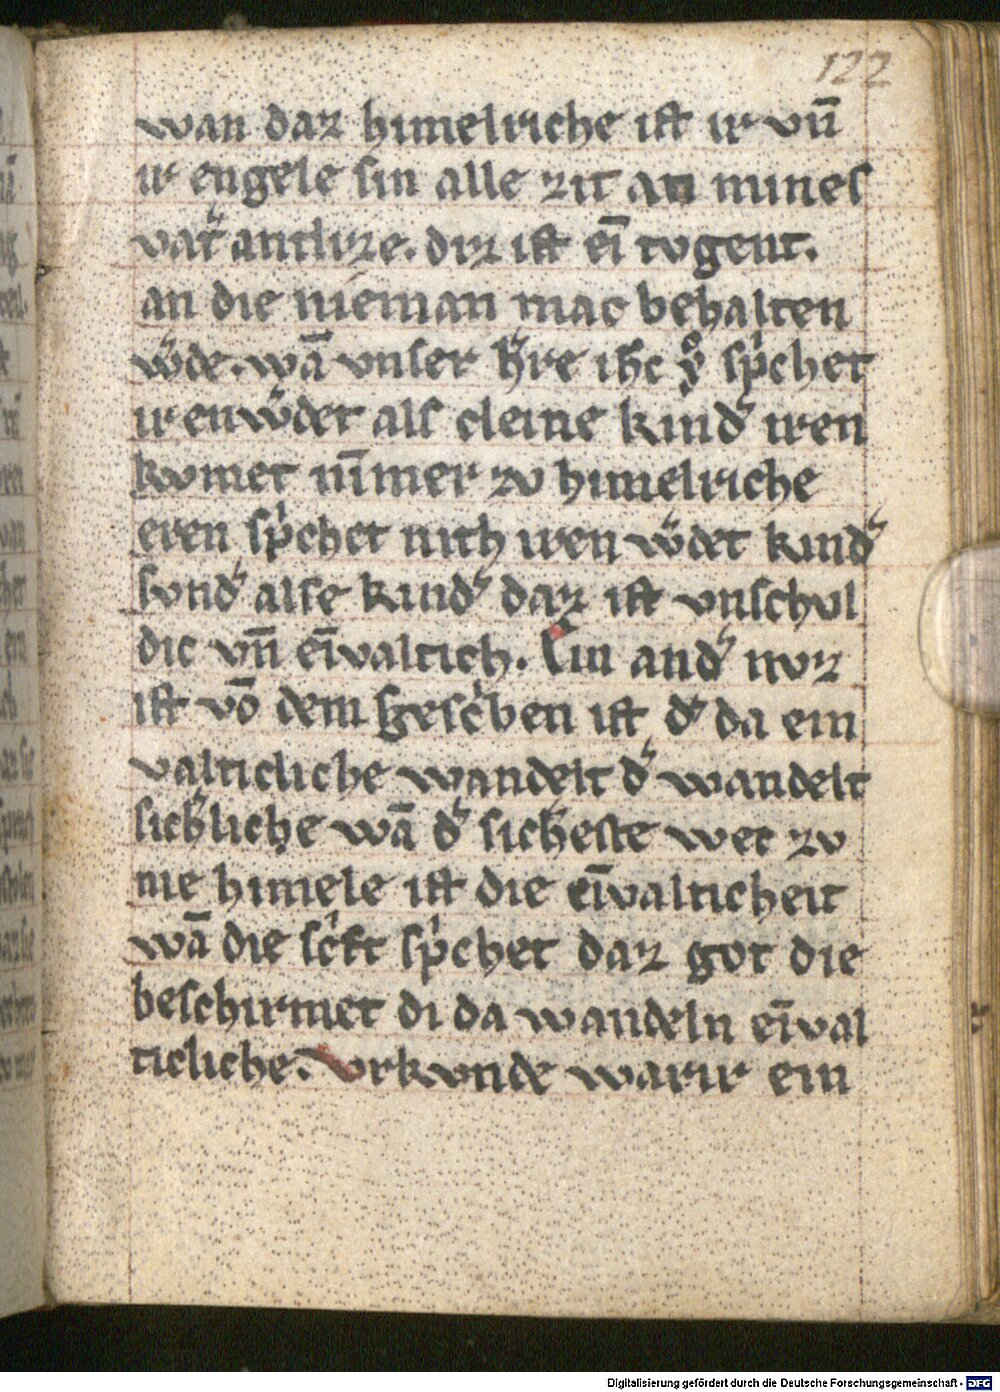 122
wan daz himelriche ist ir vn̄
ir engele sin alle zit an mines
vat͛ antlize. diz ist ei̅ togent.
an die nieman mac behalten
w͛de. wā vnser h͛re ih̄c xp̄c sp̍chet
ir enw͛det als cleine kind͛ iren
kvmet nīmer zv himelriche
eren sp̍chet nith iren w͛det kind͛
sond͛ alse kind͛ daz ist vnschol
dic vn̄ ei̅valtich. Ein and͛ nvz
ist vō dem gesc̍ben ist d͛ da ein
valticliche wandelt d͛ wandelt
sich͛liche wā d͛ sich͛este wec zv
me himele ist die ei̅valticheit
wā die sc̍ft sp̍chet daz got die
beschirmet di da wandeln ei̅val
ticliche. vrkvnde warir ein
Digitalisierung gefördert durch die Deutsche Forschungsgemeinschaft - DFG